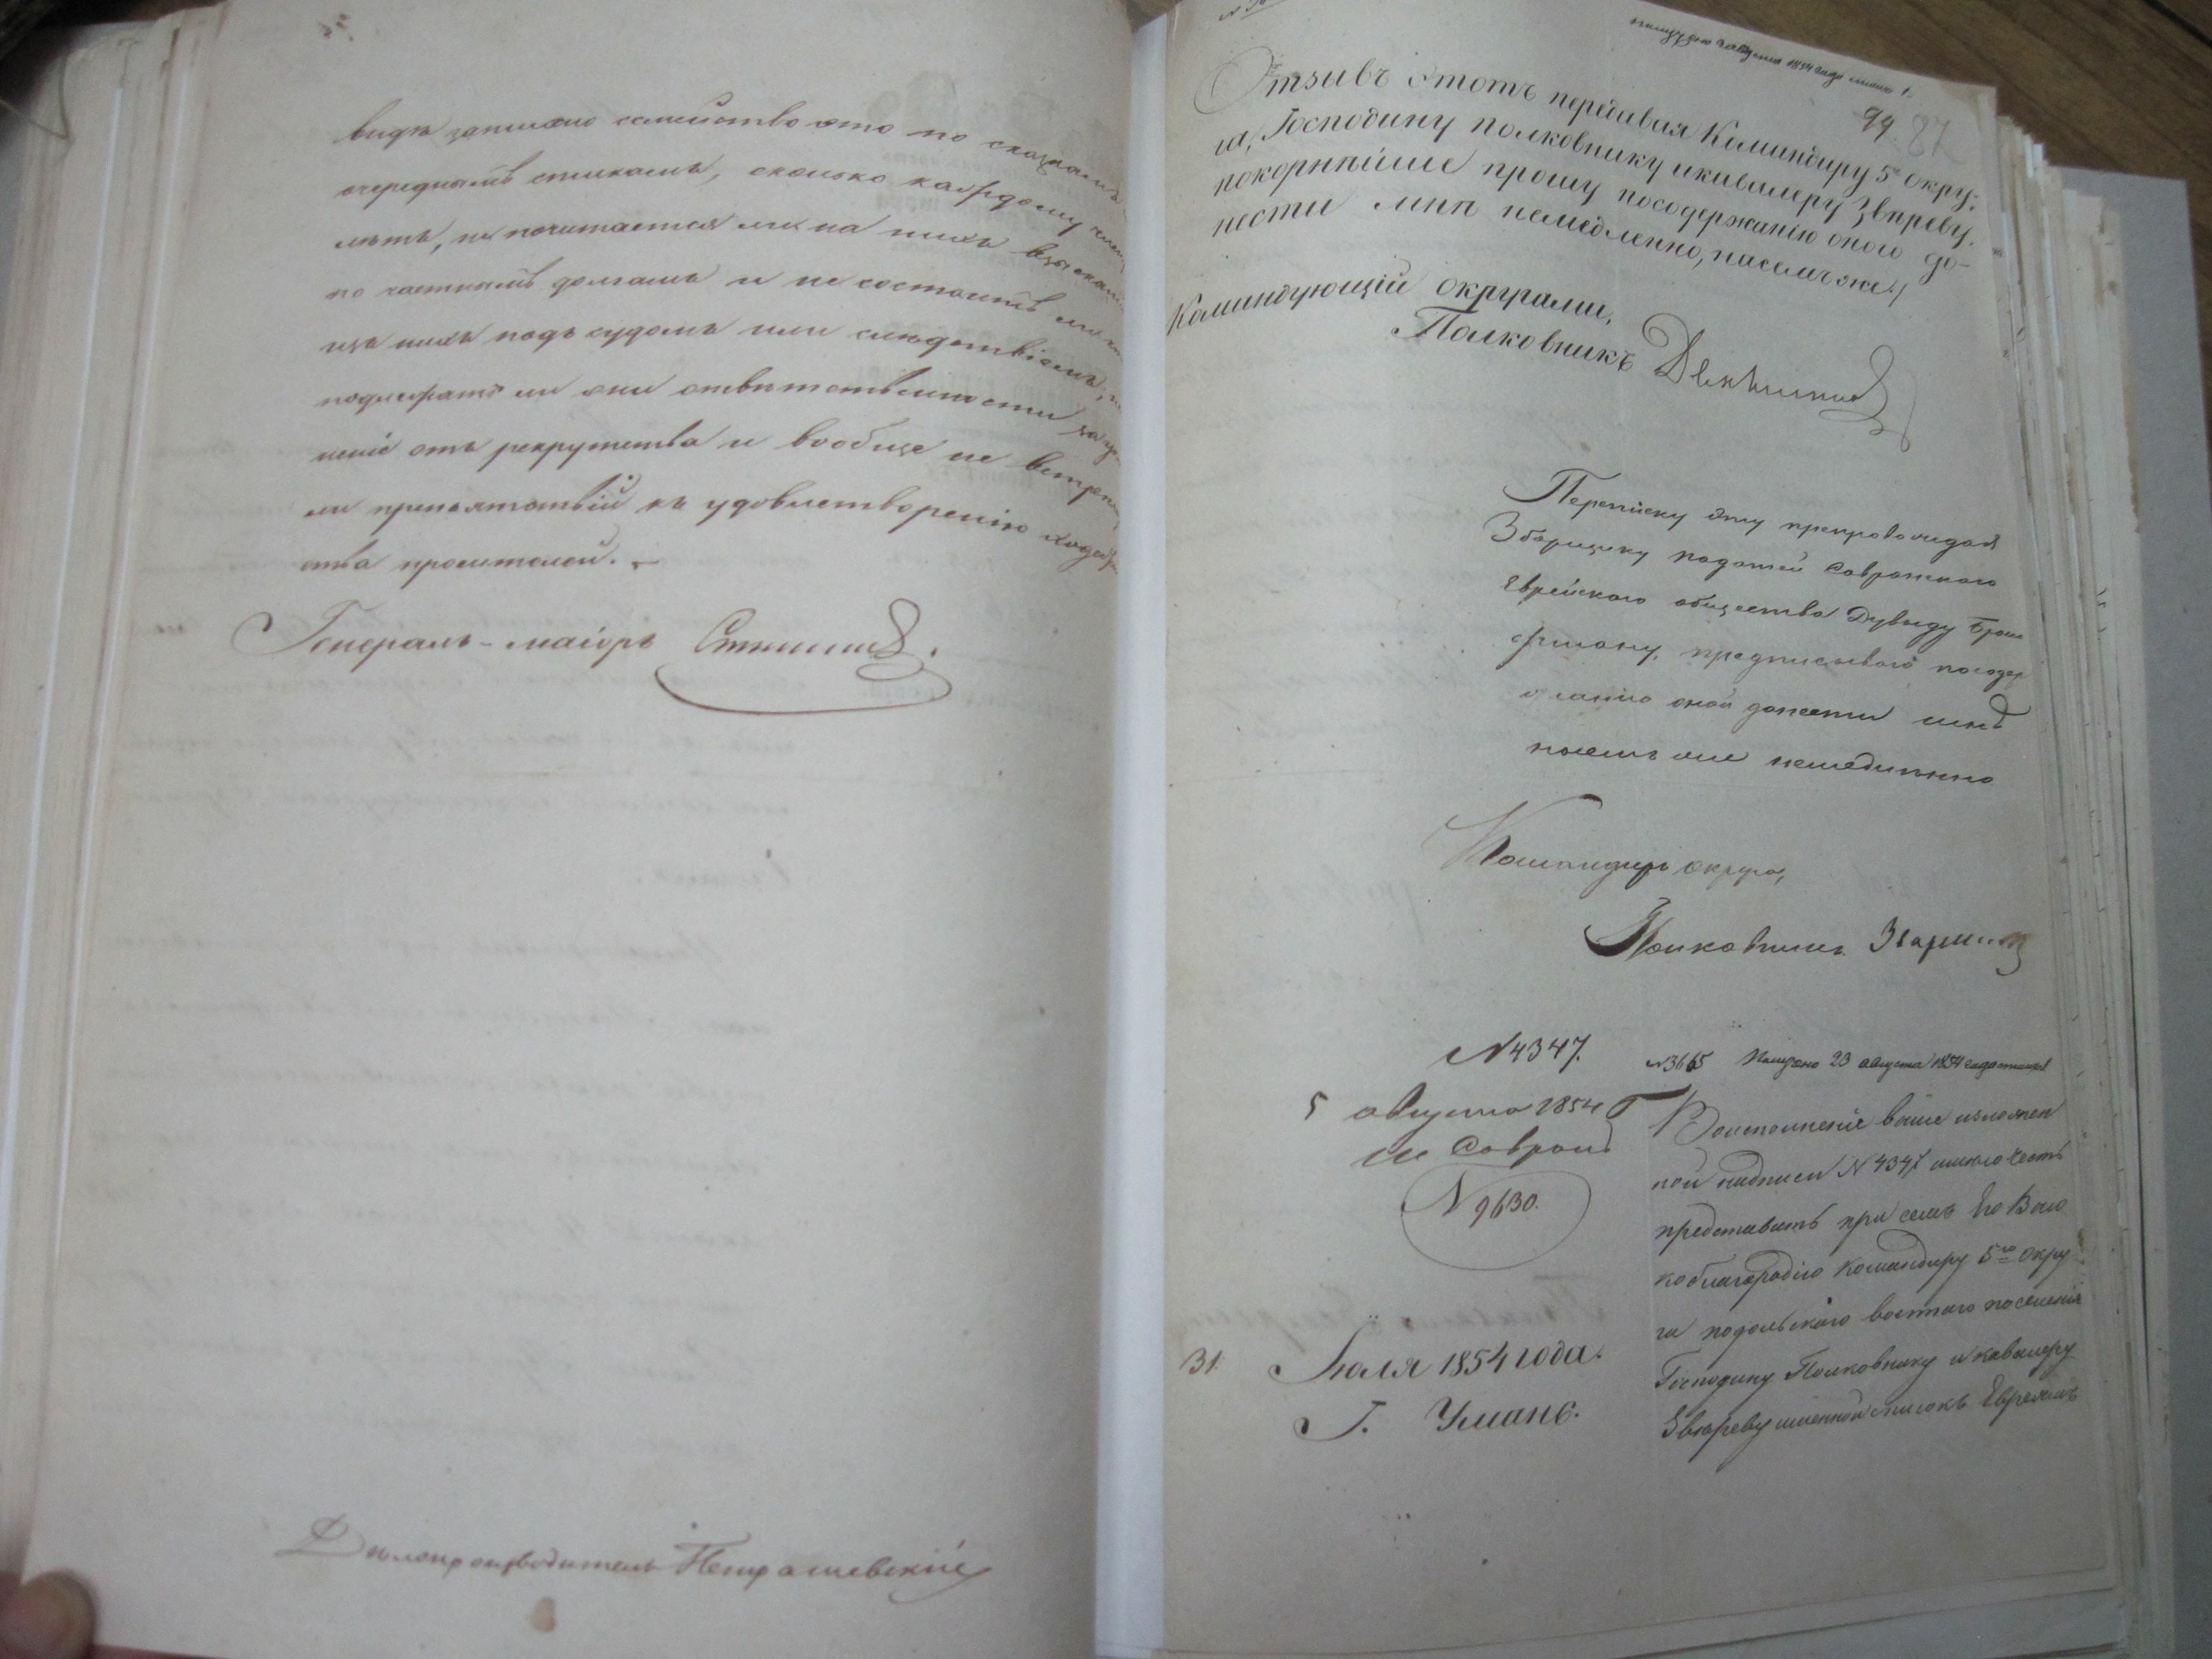 видѣ записано семейство это по сказкамъ
очереднымъ спискамъ, сколько каждому
лѣтъ, не почитается ли на нихъ взысканій
по частнымъ долгамъ и не состоитъ ли кто
изъ нихъ подъ судомъ или слѣдствіемъ, не
подлежатъ ли они отвѣтственности за
неніе отъ рекрутства и вообще не встрѣч
ли препятствій къ удовлетворенію ходатай
ства просителей.
Генералъ-маіоръ
Дѣлопроизводитель Петрашевскій
августа 1854 года
94 87
Отзывъ этотъ передавая Командиру 5го окру-
га, Господину полковнику и кавалеру Звѣреву.
покорнѣйше прошу посодержанію оного до-
нести мнѣ немедленно, на семъ же.
Командующій округами,
Полковникъ
Переписку эту препровождая
Зборщику податей Савранского
Еврейского общества Дувыду
предписываю посодер
жанію оной донести мнѣ
на семъ же немедленно
Командиръ округа,
Полковникъ
N 4347.
5 августа 1854 г
м Саврань
N 9630.
31. Іюля 1854 года.
Г. Умань.
N 3665 Получено 23 августа 1854 года
Воисполненіе ваше изложен
ной надписи N 4347 имѣю честь
представить при семъ Его Высо
коблагородію Командиру 5го Окру
га подольского военного поселенія
Господину Полковнику и кавалеру
Звѣреву именной списокъ Евреямъ